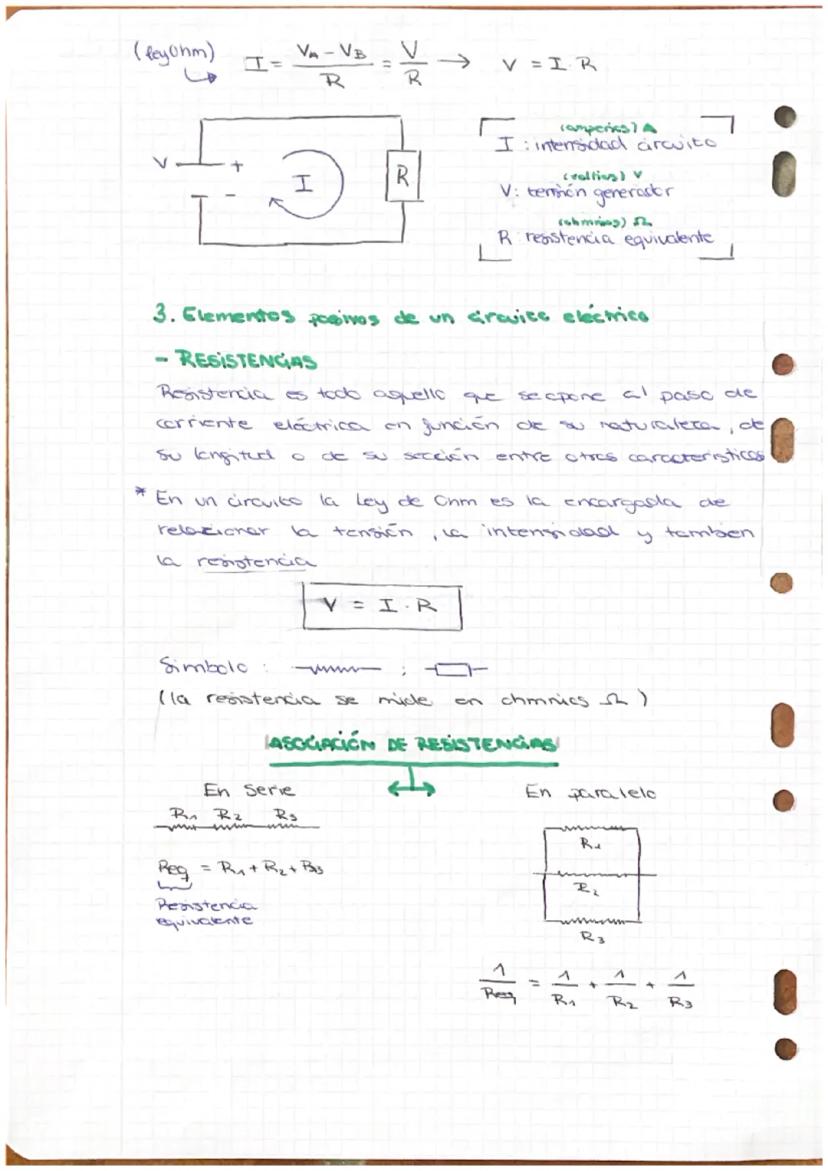 (ley Ohm) I = (VA - VB)/R = V/R → V = I · R
V + - I R
(amperios) A
I : intensidad circuito
(voltios) V
V: tensión generador
(ohmnios) Ω
R resistencia equivalente
3. Elementos pasivos de un circuito eléctrico
- RESISTENCIAS
Resistencia es todo aquello que se opone al paso de
corriente eléctrica en función de su naturaleza, de
su longitud o de su sección entre otras características
* En un circuito la Ley de Ohm es la encargada de
relacionar la tensión, la intensidad y tambien
la resistencia
V = I · R
Simbolo : ;
(la resistencia se mide en ohmnios Ω)
ASOCIACIÓN DE RESISTENCIAS
En serie
R1 R2 R3
Req = R1 + R2 + R3
Resistencia
equivalente
En paralelo
R1
R2
R3
1/Req = 1/R1 + 1/R2 + 1/R3